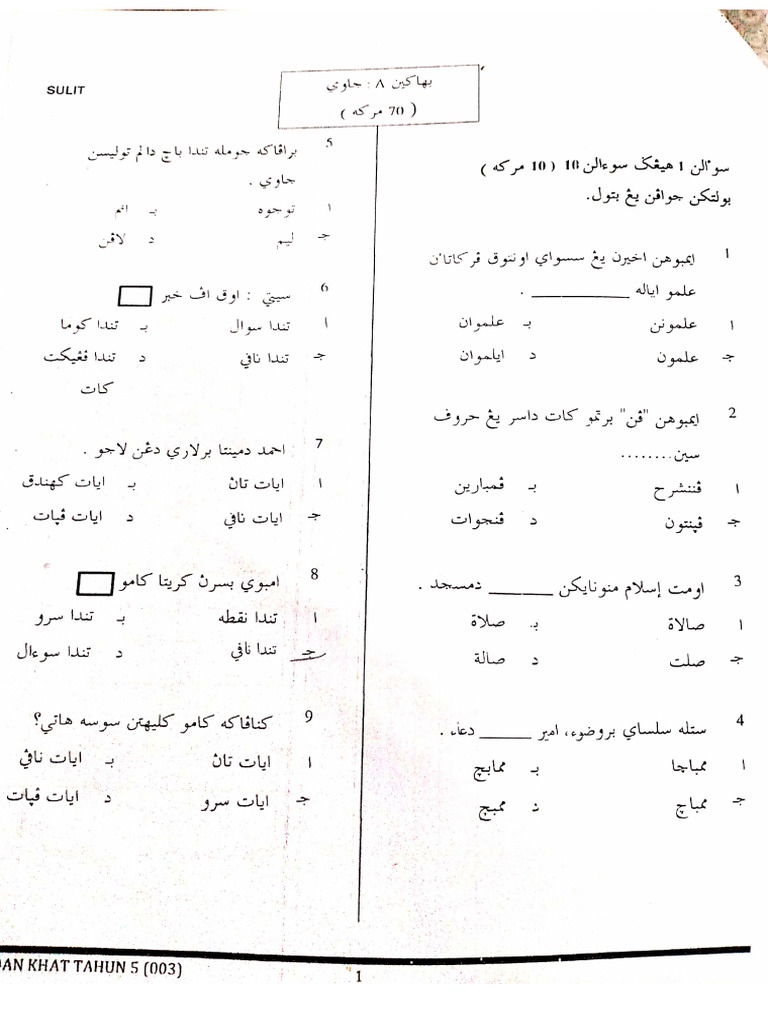 SULIT
بهاݢين ٨ : جاوي
( 70 مركه )
سوٴالن 1 هيڠݢ سوءالن 10 ( 10 مركه )
بولتكن جواڤن يڠ بتول.
1 ايمبوهن اخيرن يڠ سسواي اونتوق ڤركاتاٴن
علمو اياله ________ .
ا علمونن بـ علموان
جـ علمون د ايلموان
2 ايمبوهن "ڤن" برتمو كات داسر يڠ حروف
سين........
ا ڤننشرح بـ ڤمبارين
جـ ڤينتون د ڤنجوات
3 اومت إسلام منونايكن ______ دمسجد .
ا صالاة بـ صلاة
جـ صلت د صالة
4 ستله سلساي بروضوء، امير _____ دعاء .
ا ممباچا بـ ممبابچ
جـ ممباچ د ممبچ
5 براڤاكه جومله تندا باچ دالم توليسن
جاوي .
ا توجوه بـ انم
جـ ليم د لاڤن
6 سيتي : اوق اڤ خبر
ا تندا سوال بـ تندا كوما
جـ تندا نافي د تندا ڤڠيكت
كات
7 احمد دمينتا برلاري دڠن لاجو .
ا ايات تاڽ بـ ايات كهندق
جـ ايات نافي د ايات ڤڽات
8 امبوي بسرڽ كريتا كامو
ا تندا نقطه بـ تندا سرو
جـ تندا نافي د تندا سوءال
9 كناڤاكه كامو كليهتن سوسه هاتي؟
ا ايات تاڽ بـ ايات نافي
جـ ايات سرو د ايات ڤڽات
DAN KHAT TAHUN 5 (003)
1